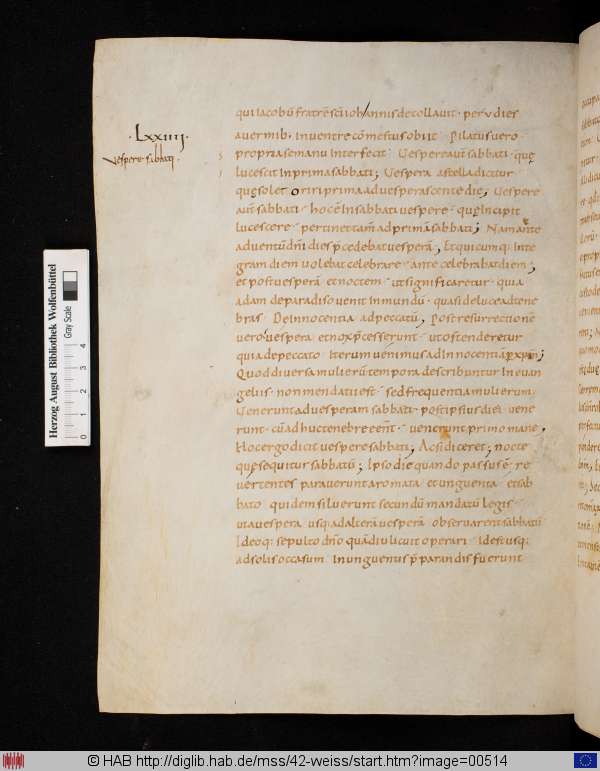 ·Lxxiiij·
Vespere· sabbati·
qui iacobū fratrē sc̄i iohannis decollauit· per v dies
a uermib; in uentre comestus obiit· Pilatus uero
propria se manu interfecit· Uespere aut̄ sabbati· quę
lucescit in prima sabbati; Uespera a stella dicitur
quę solet oriri prima aduesperascente die; Uespere
aut̄ sabbati· hoc ē in sabbati uespere· quę incipit
lucescere· pertinet tam̄ ad primā sabbati; Nam ante
aduentū dn̄i dies p̄cedebat uesperā; Et quicumq; inte
gram diem uolebat celebrare· ante celebrabat diem;
et post uesperā et noctem· ut significaretur· quia
adam de paradiso uenit in mundū· quasi de luce ad tene
bras· De innocentia ad peccatū; Post resurrectionē
uero uespera et nox p̄cesserunt· ut ostenderetur
quia de peccato· iterum uenimus ad innocentiā p̱ xpm̄;
Quod diuersa mulierū tempora describuntur in euan
geliis· non mendatii est· sed frequentia mulierum;
Uenerunt ad uesperam sabbati· post ipsius diei· uene
runt· cū adhuc tenebre eēnt· uenerunt primo mane;
Hoc ergo dicit uespere sabbati; Ac si diceret; nocte
quę sequitur sabbatū; Ipso die quando passus ē· re
uertentes parauerunt aromata· et unguenta· et sab
bato quidem siluerunt secundū mandatū legis
ut a uespera usq; ad alterā uesperā obseruarent sabbatū
Ideoq; sepulto dn̄o quādiu licuit operari· id est usq;
ad solis occasum in unguentis p̄parandis fuerunt
Herzog August Bibliothek Wolfenbüttel
Gray Scale
0 1 2 3 4
© HAB http://diglib.hab.de/mss/42-weiss/start.htm?image=00514